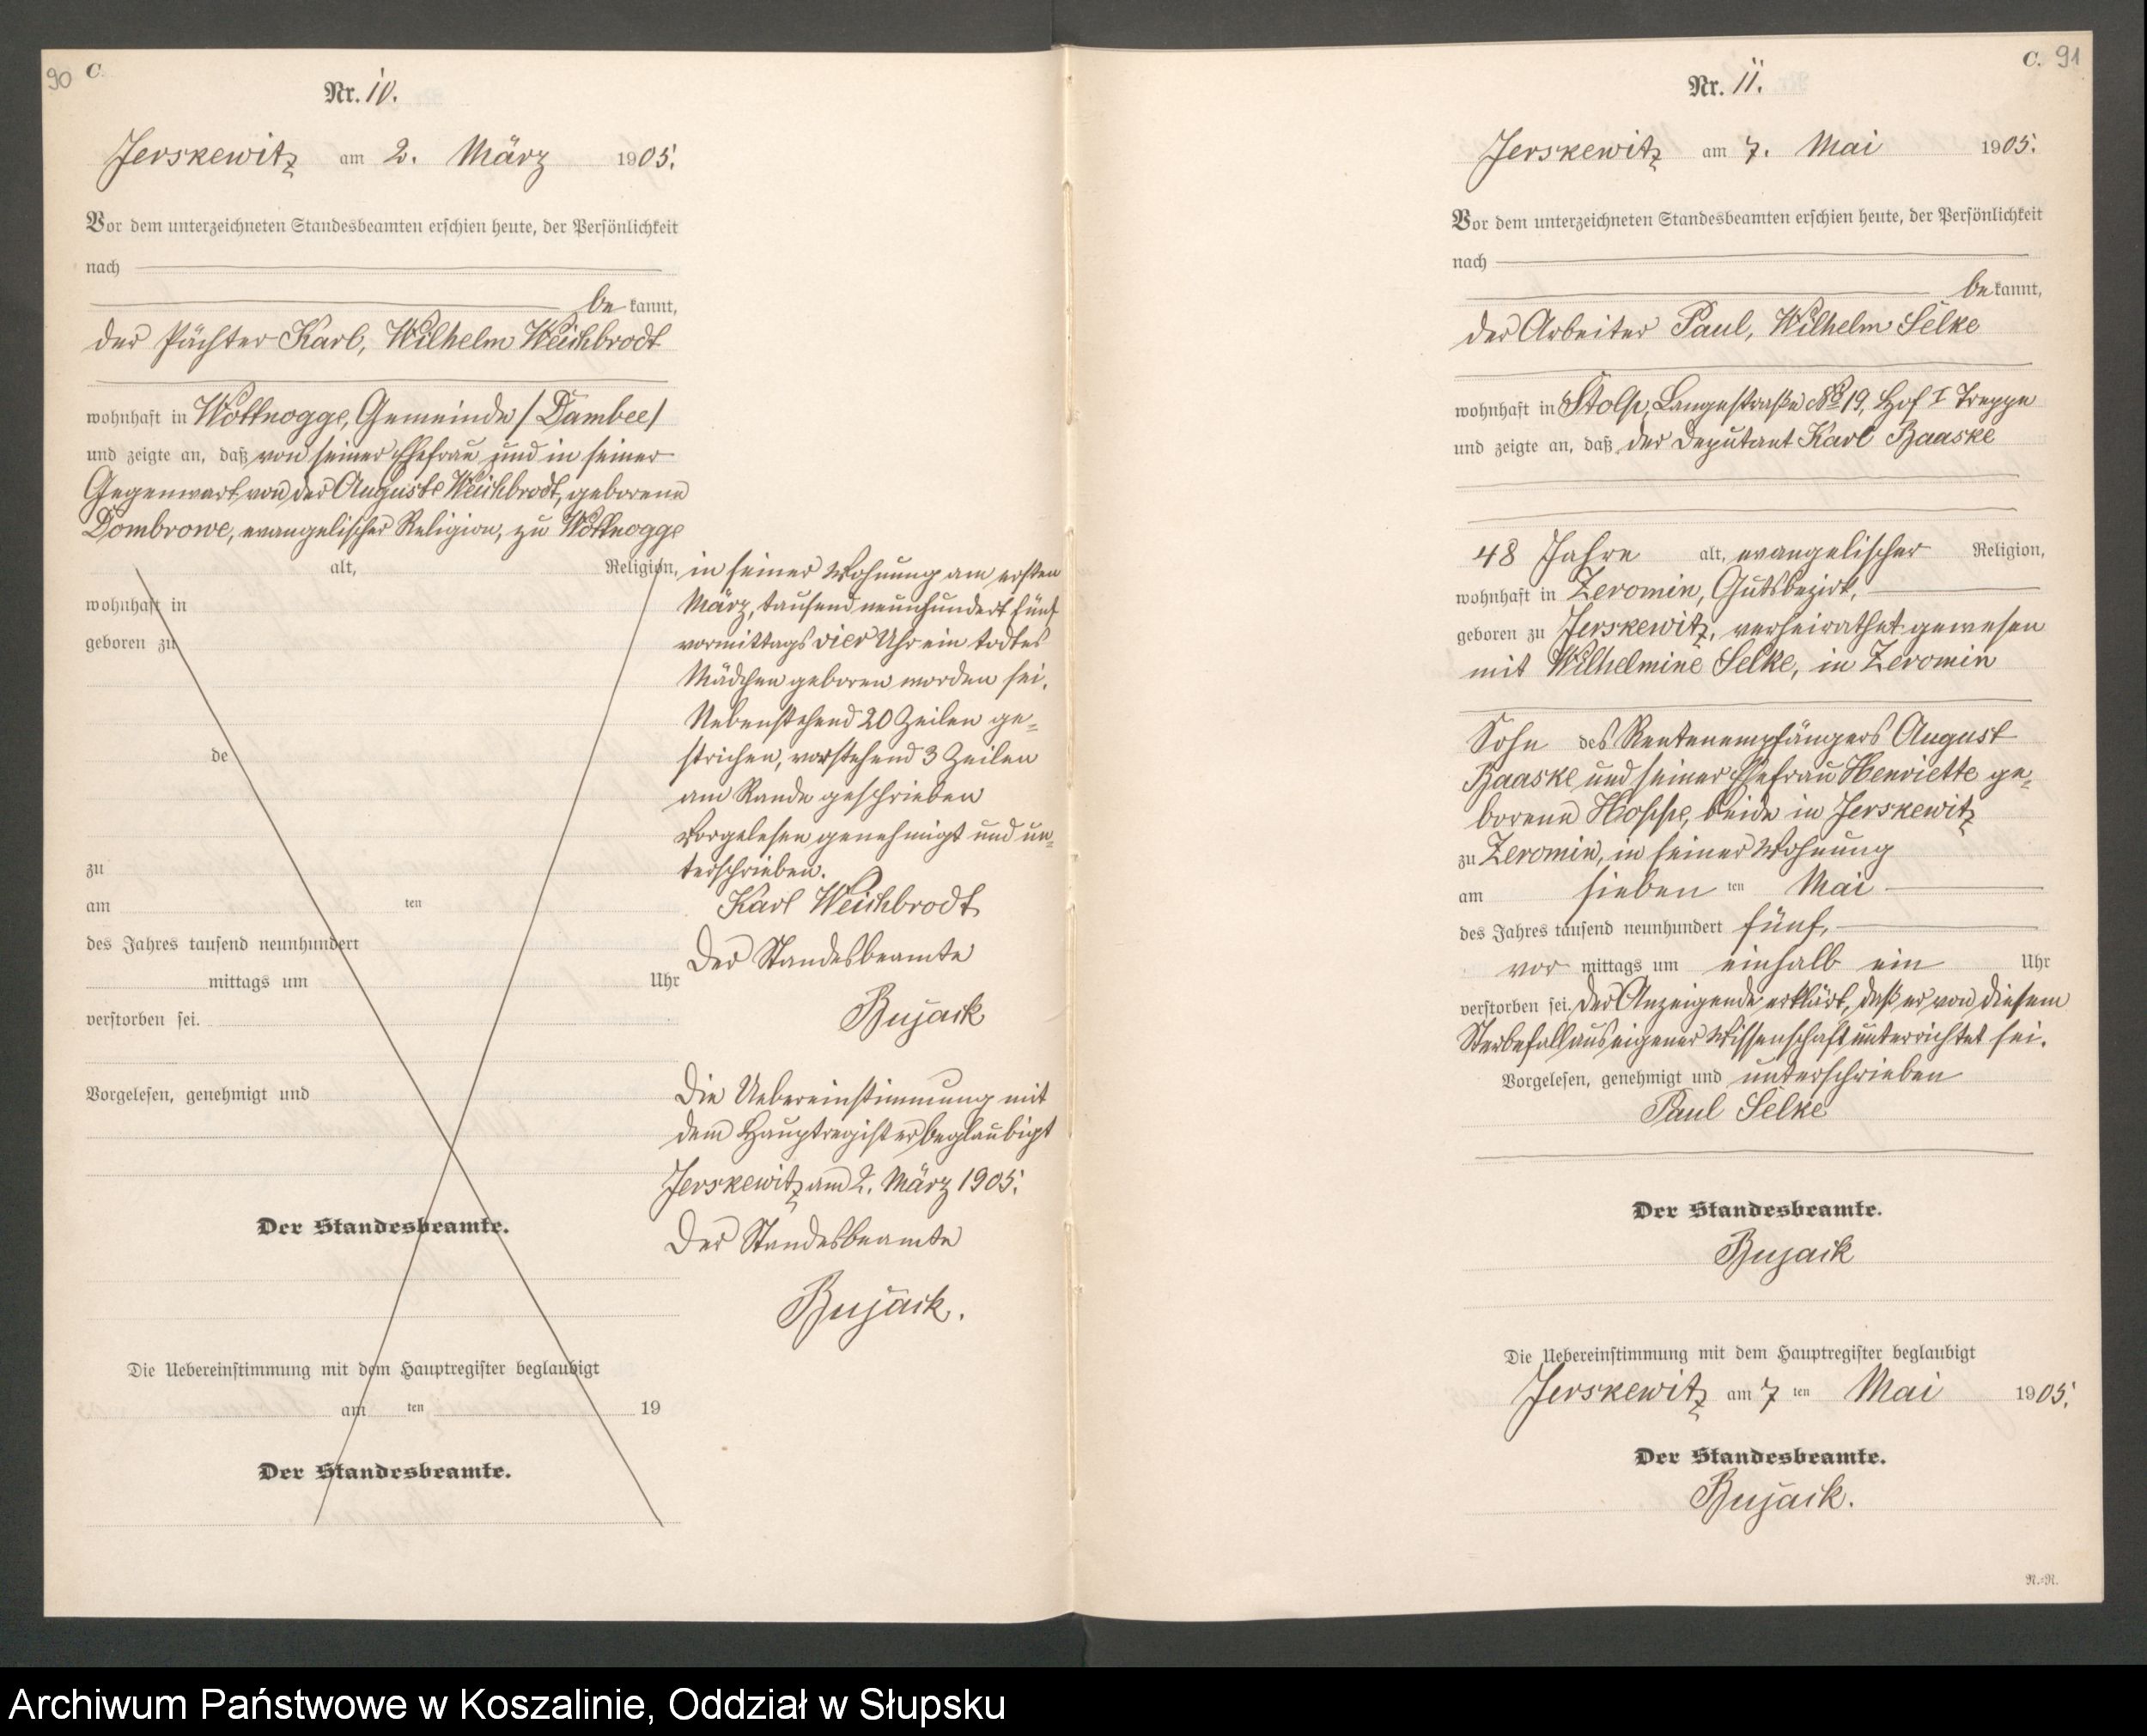 90 C.
Nr. 10.
Jerskewitz am 2. März 1905.
Vor dem unterzeichneten Standesbeamten erschien heute, der Persönlichkeit
nach
be kannt,
der Pächter Karl, Wilhelm Weichbrodt
wohnhaft in Wottnogge, Gemeinde /Dambee/
und zeigte an, daß von seiner Ehefrau und in seiner
Gegenwart von der Auguste Weichbrodt, geborene
Dombrowe, evangelischer Religion, zu Wottnogge
alt, Religion,
wohnhaft in
geboren zu
de
zu
am ten
des Jahres tausend neunhundert
mittags um Uhr
verstorben sei.
Vorgelesen, genehmigt und
Der Standesbeamte.
Die Uebereinstimmung mit dem Hauptregister beglaubigt
am ten 19
Der Standesbeamte.
in seiner Wohnung am ersten
März, tausend neunhundert fünf
vormittags vier Uhr ein todtes
Mädchen geboren worden sei.
Nebenstehend 20 Zeilen ge=
strichen, vorstehend 3 Zeilen
am Rande geschrieben
Vorgelesen genehmigt und un=
terschrieben.
Karl Weichbrodt
Der Standesbeamte
Bujack
Die Uebereinstimmung mit
dem Hauptregister beglaubigt
Jerskewitz am 2. März 1905.
Der Standesbeamte
Bujack.
C. 91
Nr. 11.
Jerskewitz am 7. Mai 1905.
Vor dem unterzeichneten Standesbeamten erschien heute, der Persönlichkeit
nach
be kannt,
der Arbeiter Paul, Wilhelm Selke
wohnhaft in Stolp, Langestraße No 19, Hof I Treppe
und zeigte an, daß der Deputant Karl Baaske
48 Jahre alt, evangelischer Religion,
wohnhaft in Zeromin, Gutsbezirk,
geboren zu Jerskewitz, verheirathet gewesen
mit Wilhelmine Selke, in Zeromin
Sohn des Rentenempfängers August
Baaske und seiner Ehefrau Henriette ge=
borene Hoppe, beide in Jerskewitz
zu Zeromin, in seiner Wohnung
am sieben ten Mai
des Jahres tausend neunhundert fünf,
vor mittags um einhalb ein Uhr
verstorben sei. Der Anzeigende erklärt, daß er von diesem
Sterbefall aus eigener Wissenschaft unterrichtet sei.
Vorgelesen, genehmigt und unterschrieben
Paul Selke
Der Standesbeamte.
Bujack
Die Uebereinstimmung mit dem Hauptregister beglaubigt
Jerskewitz am 7 ten Mai 1905.
Der Standesbeamte.
Bujack.
R.=R.
Archiwum Państwowe w Koszalinie, Oddział w Słupsku